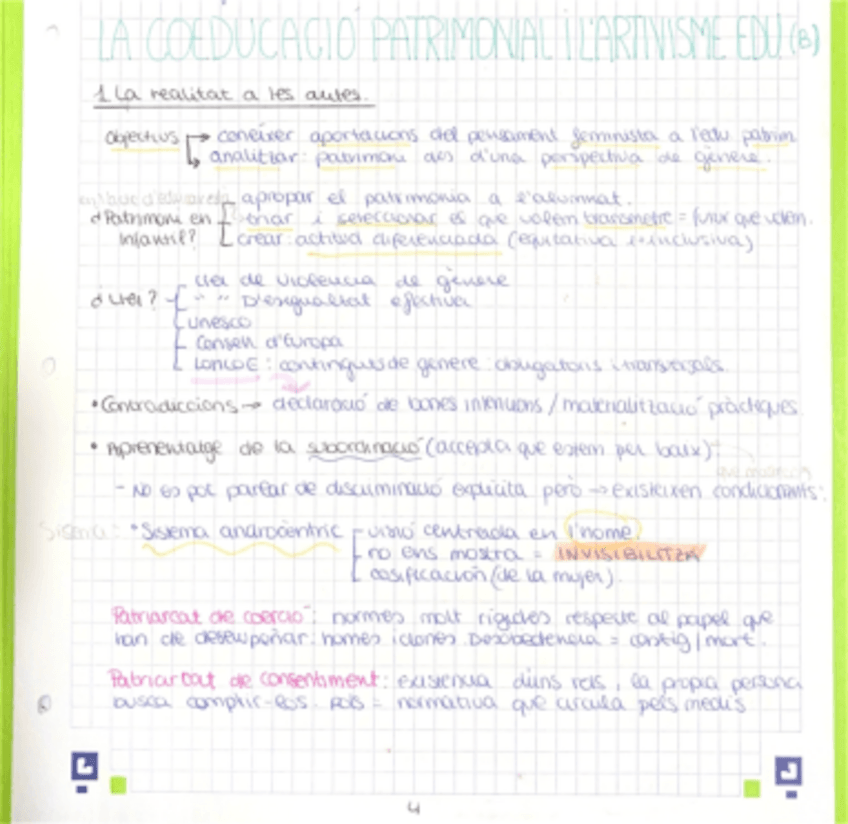 LA COEDUCACIÓ PATRIMONIAL I L'ARTIVISME EDU (B)
1. La realitat a les aules.
objectius → conèixer aportacions del pensament feminista a l'edu patrim
↳ analitzar: patrimoni des d'una perspectiva de gènere.
apropar el patrimonia a l'alumnat.
¿Patrimoni en Infantil? triar i seleccionar es que volem transmetre = futur que volem.
crear: actitud diferenciada (equitativa i inclusiva)
Llei de violencia de gènere
¿Llei? " " D'esigualtat efectiva
Unesco
Consell d'Europa
LOMLOE: continguts de genere: obligatoris i transversals.
• Contradiccions → declaració de bones intencions / materialització pràctiques
• Aprenentatge de la subordinació (accepta que estem per baix):
- No es pot parlar de discriminació explícita però → existeixen condicionants:
• Sistema androcèntric visió centrada en l'home.
no ens mostra = INVISIBILITZA
cosificación (de la mujer).
Patriarcat de coerció: normes molt rígides respecte al papel que
han de desempeñar: homes i dones Desobediencia = castig / mort.
Patriarcat de consentiment: existencia d'uns rols, la propia persona
busca complir-los. Rols = normativa que circula pels medis
4